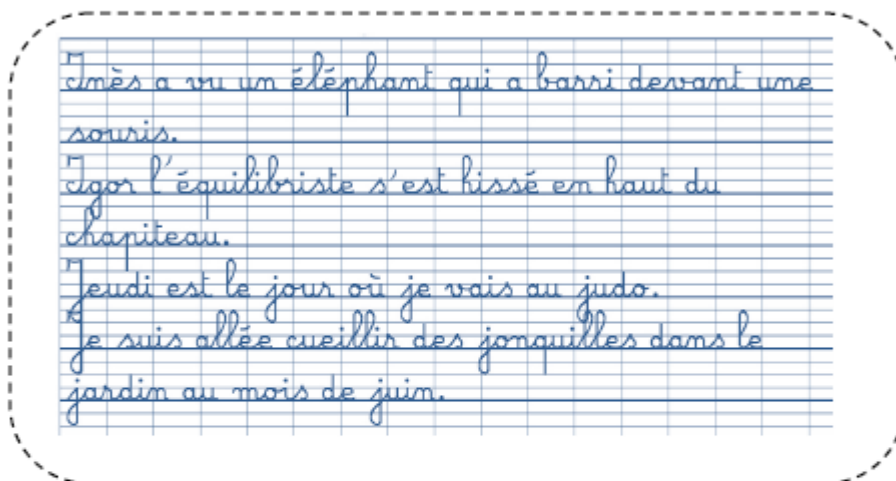 Inès a vu un éléphant qui a barri devant une
souris.
Igor l'équilibriste s'est hissé en haut du
chapiteau.
Jeudi est le jour où je vais au judo.
Je suis allée cueillir des jonquilles dans le
jardin au mois de juin.